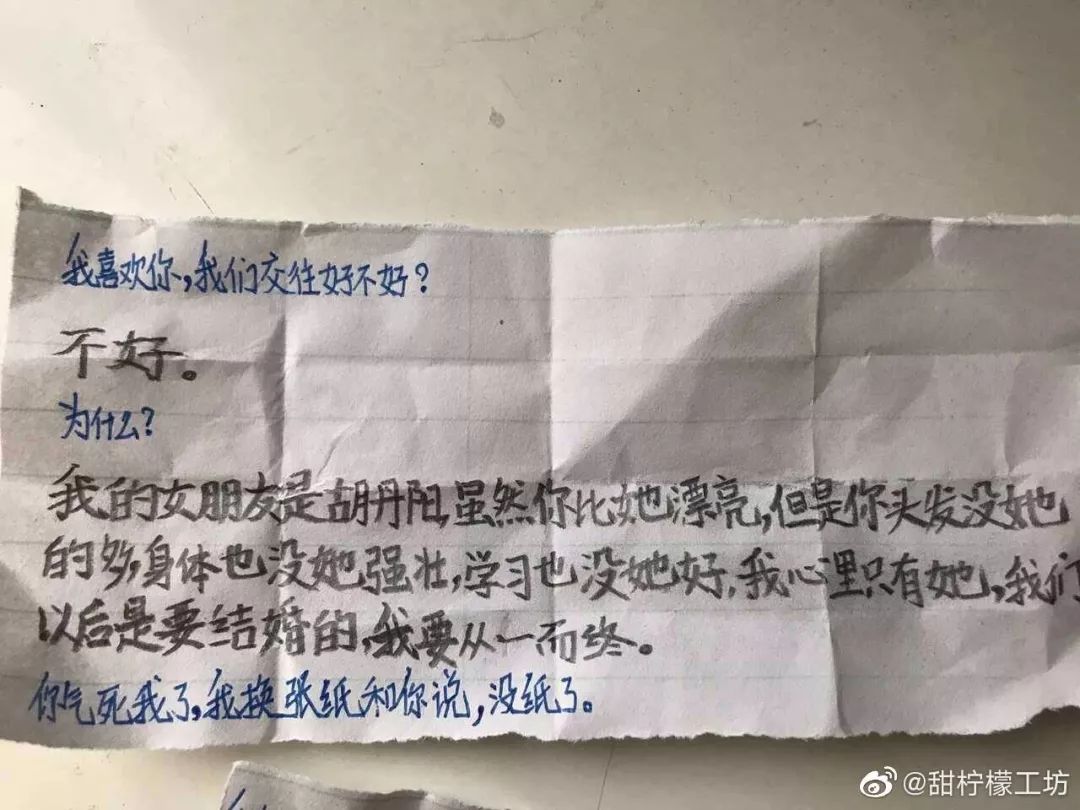 我喜欢你,我们交往好不好?
不好。
为什么?
我的女朋友是胡丹阳,虽然你比她漂亮,但是你头发没她
的多,身体也没她强壮,学习也没她好,我心里只有她,我们
以后是要结婚的,我要从一而终。
你气死我了,我换张纸和你说,没纸了。
@甜柠檬工坊